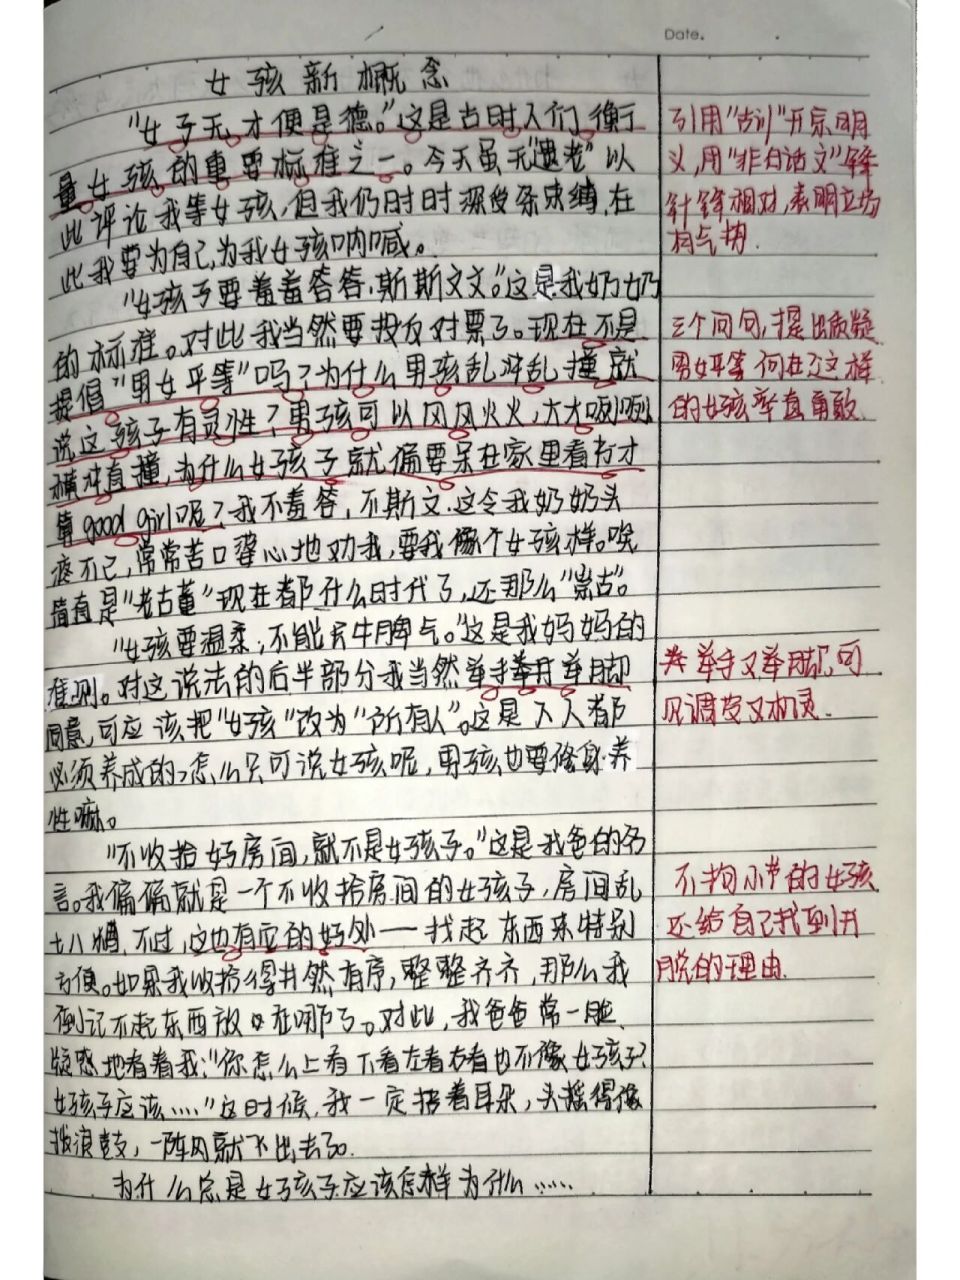 Date.
女孩新概念
“女子无才便是德。”这是古时人们衡
量女孩的重要标准之一。今天虽无“遗老”以
此评论我等女孩,但我仍时时深受束缚,在
此我要为自己,为我女孩呐喊。
“女孩子要羞羞答答,斯斯文文。”这是我奶奶
的标准。对此我当然要投反对票了。现在不是
提倡“男女平等”吗?为什么男孩乱冲乱撞就
说这孩子有灵性?男孩可以风风火火,大大咧咧
横冲直撞,为什么女孩子就偏要呆在家里看书才
算good girl呢?我不羞答,不斯文.这令我奶奶头
疼不已,常常苦口婆心地劝我,要我像个女孩样。唉
简直是“老古董”现在都什么时代了,还那么“崇古”。
“女孩要温柔,不能大牛脾气。”这是我妈妈的
准则。对这说法的后半部分我当然举手举手举脚
同意,可应该把“女孩”改为“所有人”。这是人人都
必须养成的,怎么只可说女孩呢,男孩也要修身养
性嘛。
“不收拾好房间,就不是女孩子。”这是我爸的名
言。我偏偏就是一个不收拾房间的女孩子,房间乱
七八糟,不过,这也有它的好处——找起东西来特别
方便。如果我收拾得井然有序,整整齐齐,那么我
倒记不起东西放在哪了。对此,我爸爸常一脸
疑惑地看着我:“你怎么上看下看左看右看也不像女孩子?
女孩子应该……”这时候,我一定捂着耳朵,头摇得像
拨浪鼓,一阵风就飞出去了.
为什么总是女孩子应该怎样为什么……
引用“古训”开宗明
义,用“非白话文”锋
针锋相对,表明立场
有气势.
三个问句,提出质疑
男女平等何在?这样
的女孩率直勇敢.
举手又举脚,可
见调皮又机灵.
不拘小节的女孩
还给自己找到开
脱的理由.